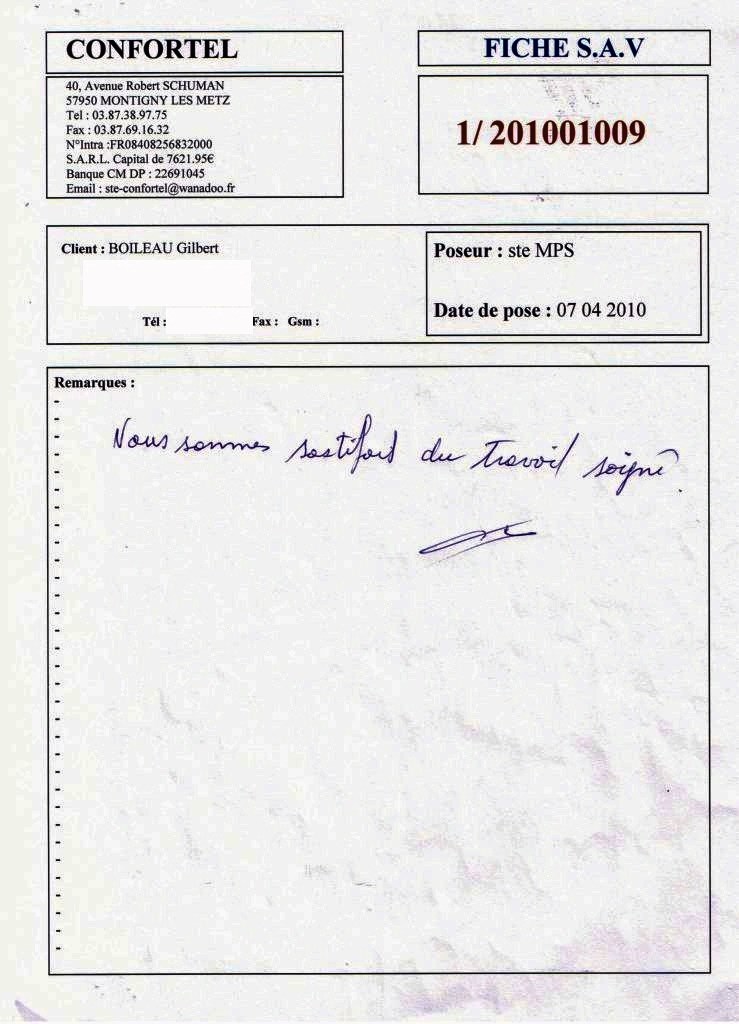 CONFORTEL
FICHE S.A.V
40, Avenue Robert SCHUMAN
57950 MONTIGNY LES METZ
Tel : 03.87.38.97.75
Fax : 03.87.69.16.32
N°Intra :FR08408256832000
S.A.R.L. Capital de 7621.95€
Banque CM DP : 22691045
Email : ste-confortel@wanadoo.fr
1/ 201001009
Client : BOILEAU Gilbert
Tél : Fax : Gsm :
Poseur : ste MPS
Date de pose : 07 04 2010
Remarques :
Nous sommes sastifait du travail soigné